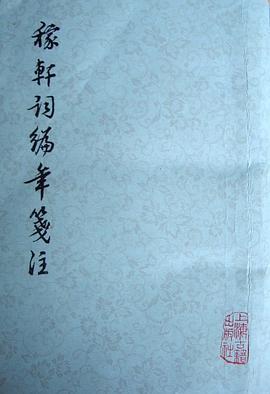 稼轩词编年笺注
上海古籍
出版社